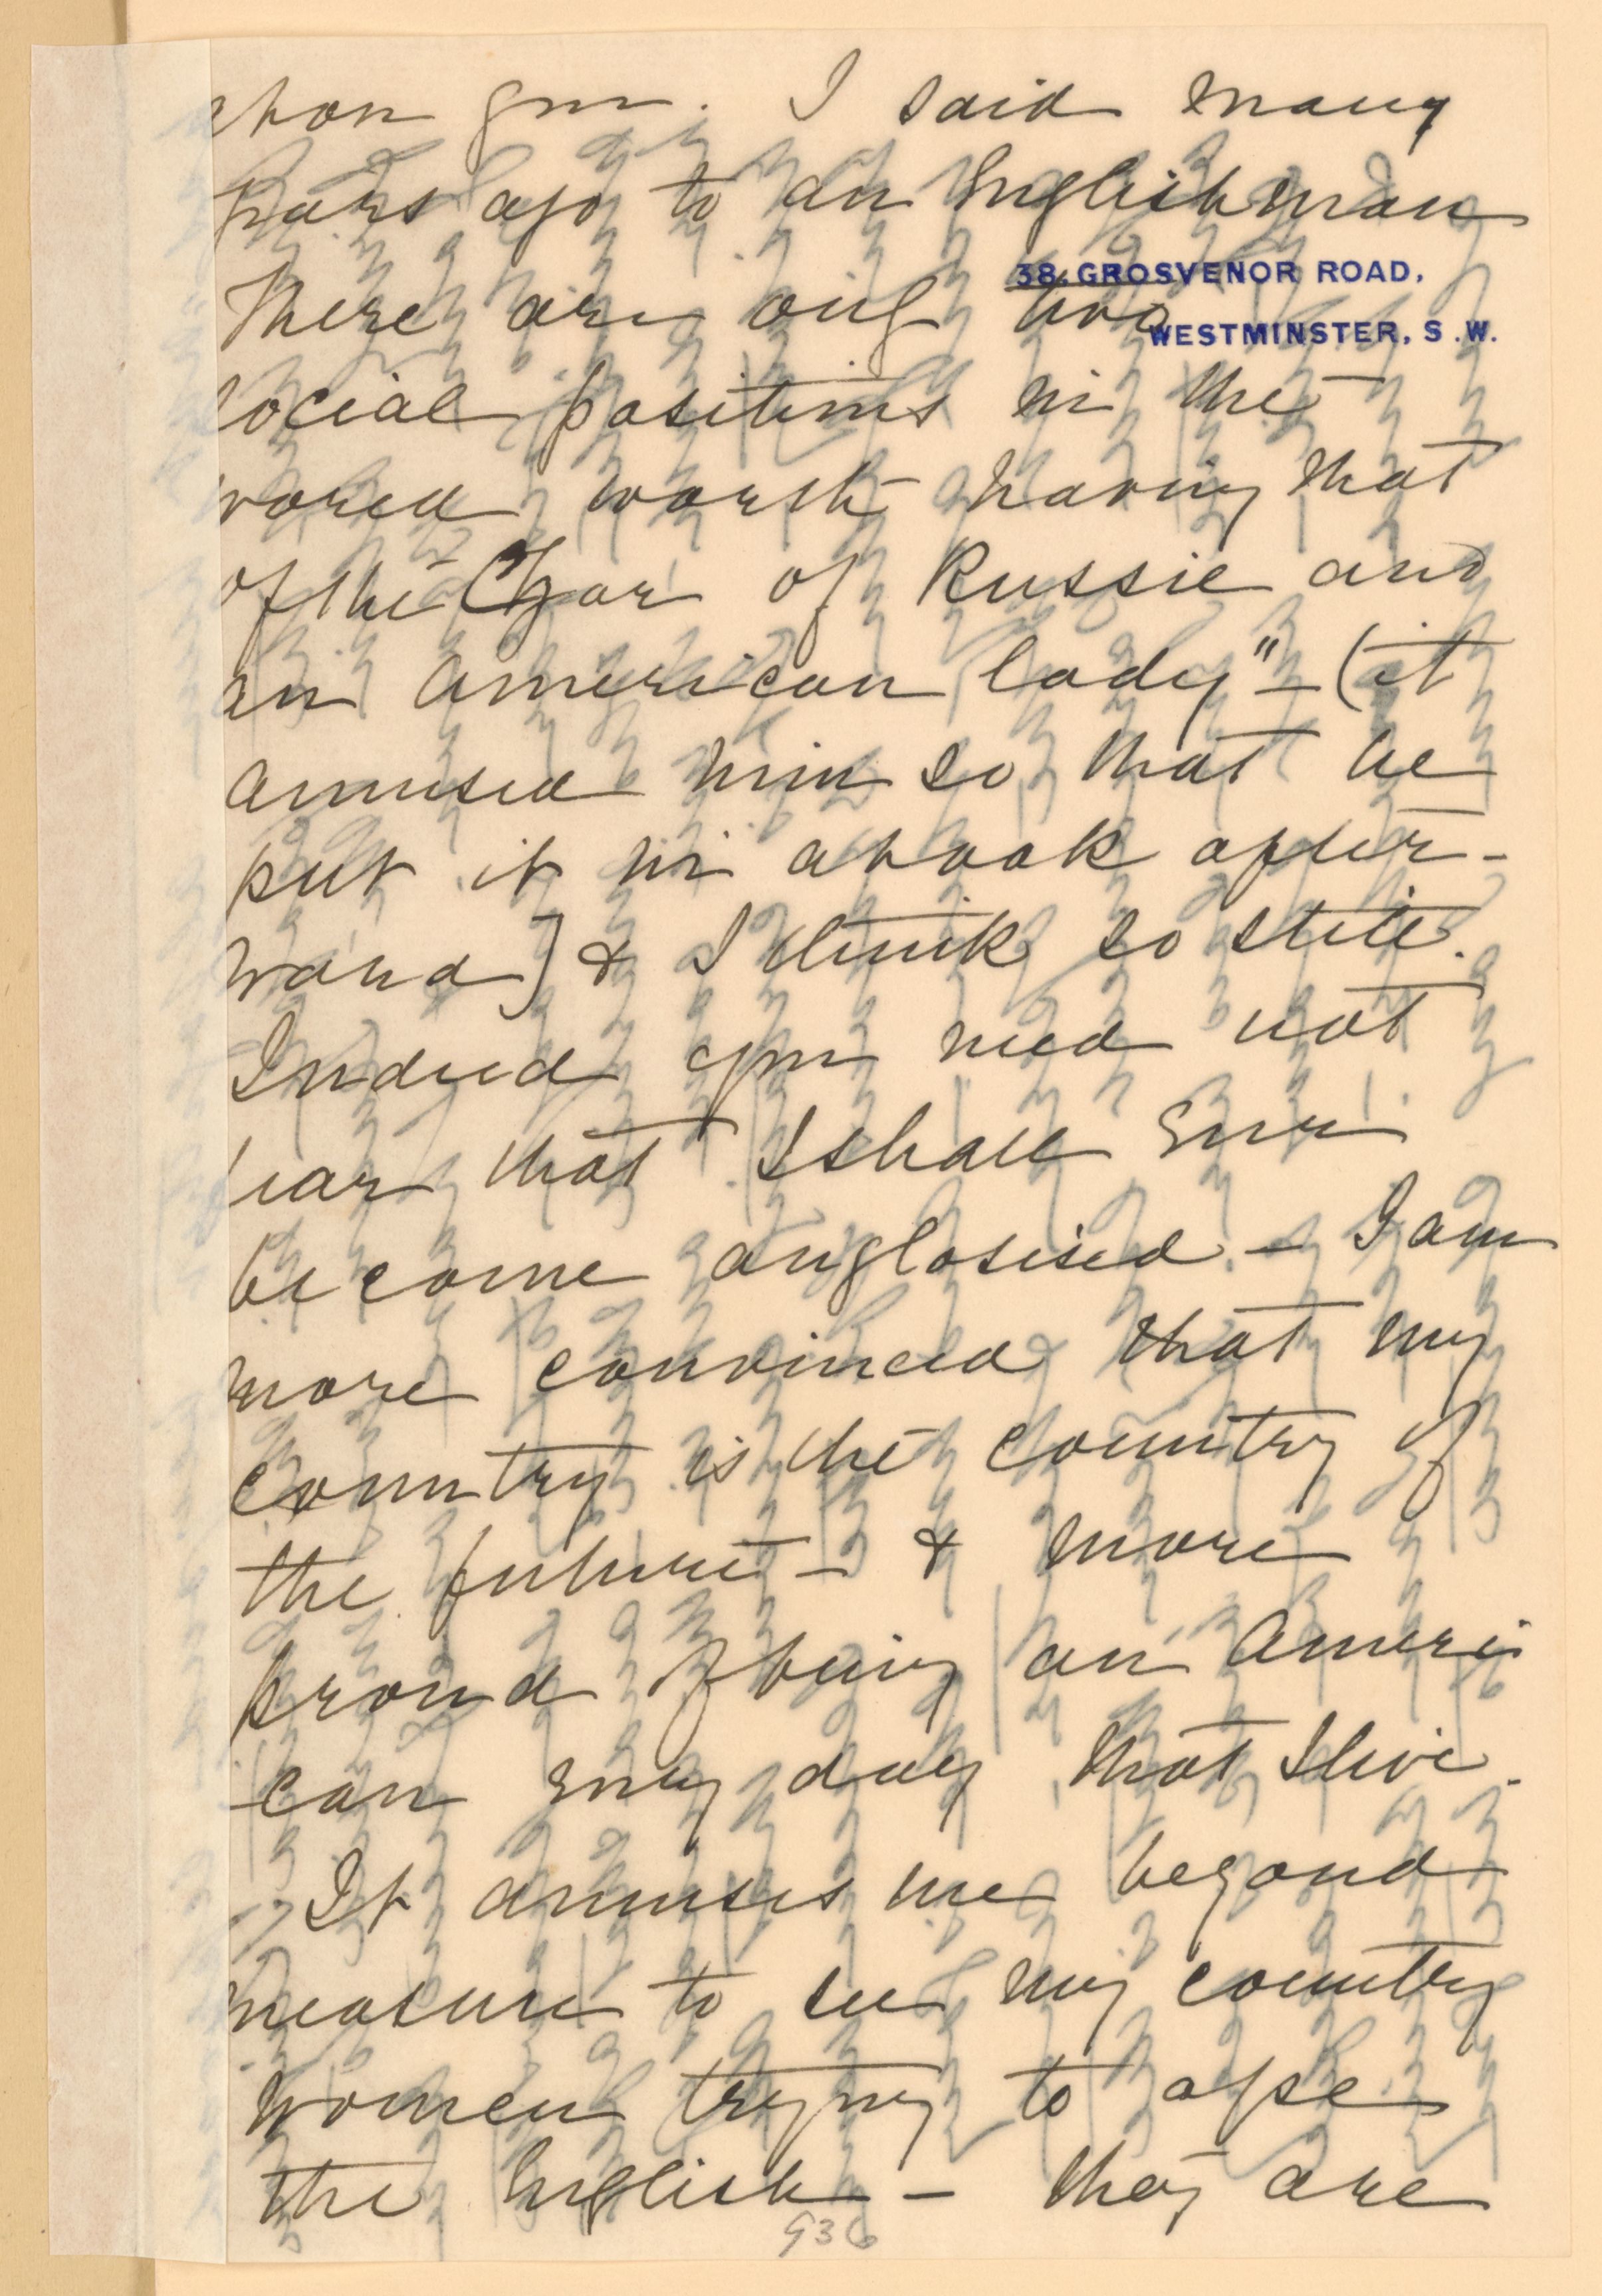 upon you. I said many
years ago to an Englishman
38, GROSVENOR ROAD,
There are only two
WESTMINSTER, S.W.
social positions in the
world worth having that
of the Czar of Russie and
an American lady" – (it
amused him so that he
put it in a book after-
ward) & I think so still.
Indeed you need not
fear that I shall ever
become anglosised – I am
more convinced that my
country is the country of
the future – & more
proud of being an Ameri
can every day that I live.
It amuses me beyond
measure to see my country
women trying to ape
the English – they are
936